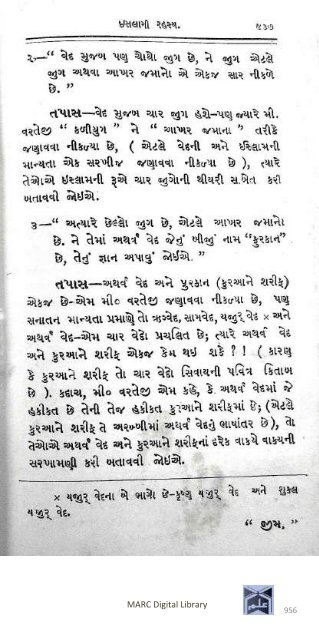 ઇસલામી રહસ્ય. ૬૩૭
૨.—“ વેદ મુજબ પણ ચોથો જુગ છે, ને જુગ એટલે
જુગ અથવા આખર જમાનો એ એકજ સાર નીકળે
છે. ”
તપાસ—વેદ મુજબ ચાર જુગ હશે-પણ જ્યારે મી.
વરતેજી “ કળીયુગ ” ને “ આખર જમાના ” તરીકે
જણાવવા નીકળ્યા છે, ( એટલે વેદની અને ઇસ્લામની
માન્યતા એક સરખીજ જણાવવા નીકળ્યા છે ), ત્યારે
તેઓએ ઇસ્લામની રૂએ ચાર જુગોની થીયરી સાબેત કરી
બતાવવી જોઈએ.
૩—“ અત્યારે છેલ્લો જુગ છે, એટલે આખર જમાનો
છે. ને તેમાં અથર્વ વેદ જેનું બીજું નામ “ફુરકાન”
છે, તેનું જ્ઞાન અપાવું જોઈએ. ”
તપાસ—અથર્વ વેદ અને ફુરકાન (કુરઆને શરીફ)
એકજ છે-એમ મી૦ વરતેજી જણાવવા નીકળ્યા છે, પણ
સનાતન માન્યતા પ્રમાણે તો ઋગ્વેદ, સામવેદ, યજુર્ વેદ × અને
અથર્વ વેદ-એમ ચાર વેદો પ્રચલિત છે; ત્યારે અથર્વ વેદ
અને કુરઆને શરીફ એકજ કેમ થઇ શકે ? ! ( કારણ
કે કુરઆને શરીફ તો ચાર વેદો સિવાયની પવિત્ર કિતાબ
છે ). કદાચ, મી૦ વરતેજી એમ કહે, કે અથર્વ વેદમાં જે
હકીકત છે તેની તેજ હકીકત કુરઆને શરીફમાં છે; (એટલે
કુરઆને શરીફ તે અરબીમાં અથર્વ વેદનું ભાષાંતર છે), તો
તેઓએ અથર્વ વેદ અને કુરઆને શરીફનાં દરેક વાક્યે વાક્યની
સરખામણી કરી બતાવવી જોઈએ.
× યજુર્ વેદના બે ભાગો છે-કૃષ્ણ યજુર્ વેદ અને શુકલ
યજુર્ વેદ.
“ જીમ. ”
MARC Digital Library 956